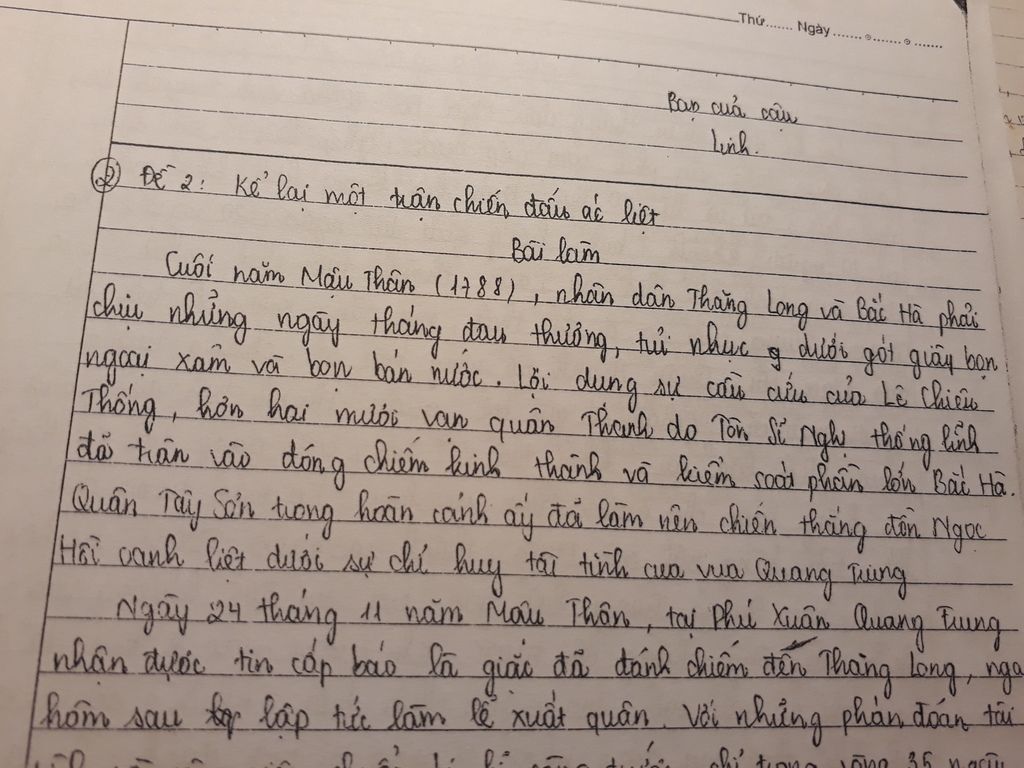 Thứ....... Ngày.......
Bạn của cậu
Linh.
② Đề 2: Kể lại một trận chiến đấu ác liệt
Bài làm
Cuối năm Mậu Thân (1788), nhân dân Thăng Long và Bắc Hà phải
chịu những ngày tháng đau thương, tủi nhục dưới gót giày bọn
ngoại xâm và bọn bán nước. Lợi dụng sự cầu cứu của Lê Chiêu
Thống, hơn hai mươi vạn quân Thanh do Tôn Sĩ Nghị thống lĩnh
đã tràn vào đóng chiếm kinh thành và kiểm soát phần lớn Bắc Hà.
Quân Tây Sơn trong hoàn cảnh ấy đã làm nên chiến thắng đồn Ngọc
Hồi oanh liệt dưới sự chỉ huy tài tình của vua Quang Trung
Ngày 24 tháng 11 năm Mậu Thân, tại Phú Xuân Quang Trung
nhận được tin cấp báo là giặc đã đánh chiếm đến Thăng Long, nga
hôm sau lập tức làm lễ xuất quân. Với những phán đoán tài
chỉ trong vòng 35 ngày